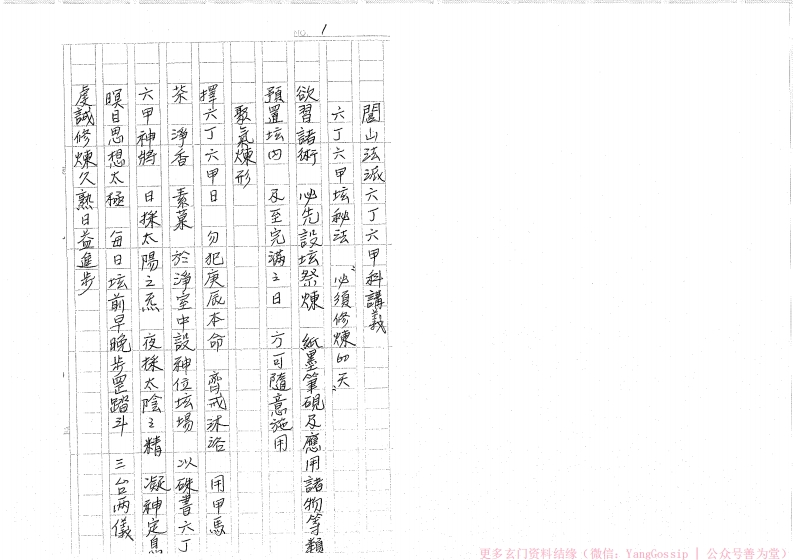 NO. 1
閭山法派六丁六甲科講義
六丁六甲坛秘法 "必須修煉40天"
欲習諸術 必先設坛祭煉 紙墨筆硯及應用諸物等類
預置坛内 及至完滿之日 方可隨意施用
聚氣煉形
擇六丁六甲日 勿犯庚辰本命 齊戒沐浴 用甲馬
茶 淨香 素菓 於淨室中設神位坛場 以硃書六丁
六甲神將 日採太陽之炁 夜採太陰之精 凝神定息
暝目思想太極 每日坛前早晚步罡踏斗 三台兩儀
虔誠修煉久熟日益進步
更多玄门资料结缘（微信：YangGossip | 公众号善为堂）